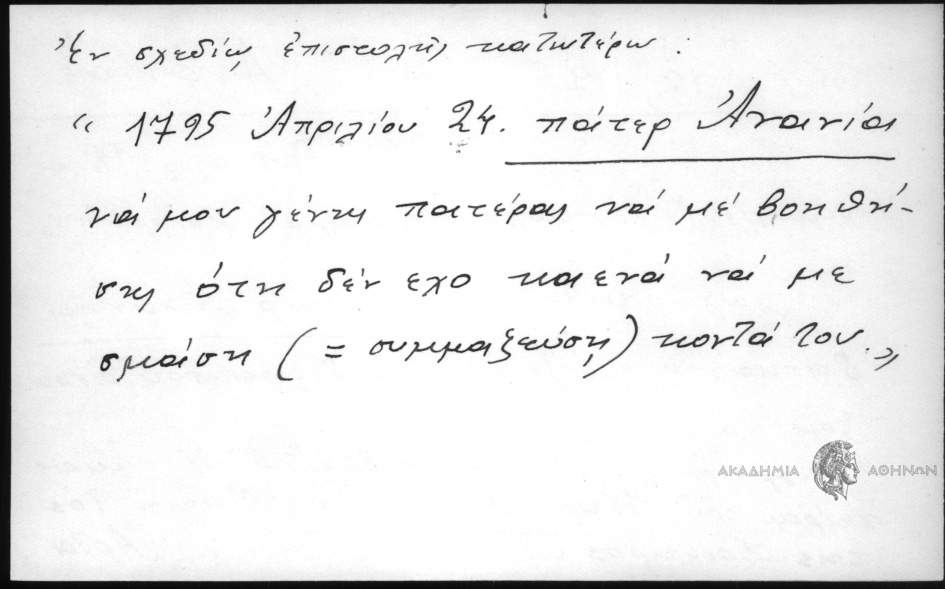 Ἐν σχεδίῳ ἐπιστολῆς κατωτέρω :
“ 1795 Ἀπριλίου 24. πάτερ Ἀνανία
νά μου γένης πατέρας νά μέ βοηθή-
σης ὅτη δέν εχο καενά νά με
σμάση (= συμμαζεύσῃ) κοντά του.”
ΑΚΑΔΗΜΙΑ ΑΘΗΝΩΝ